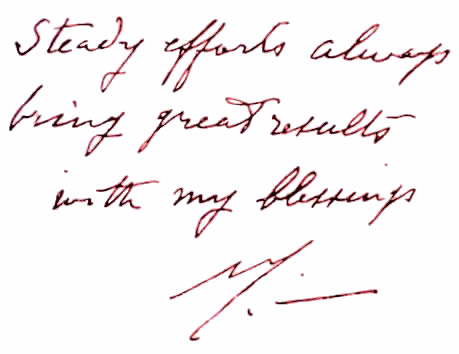 Steady efforts always
bring great results
with my blessings